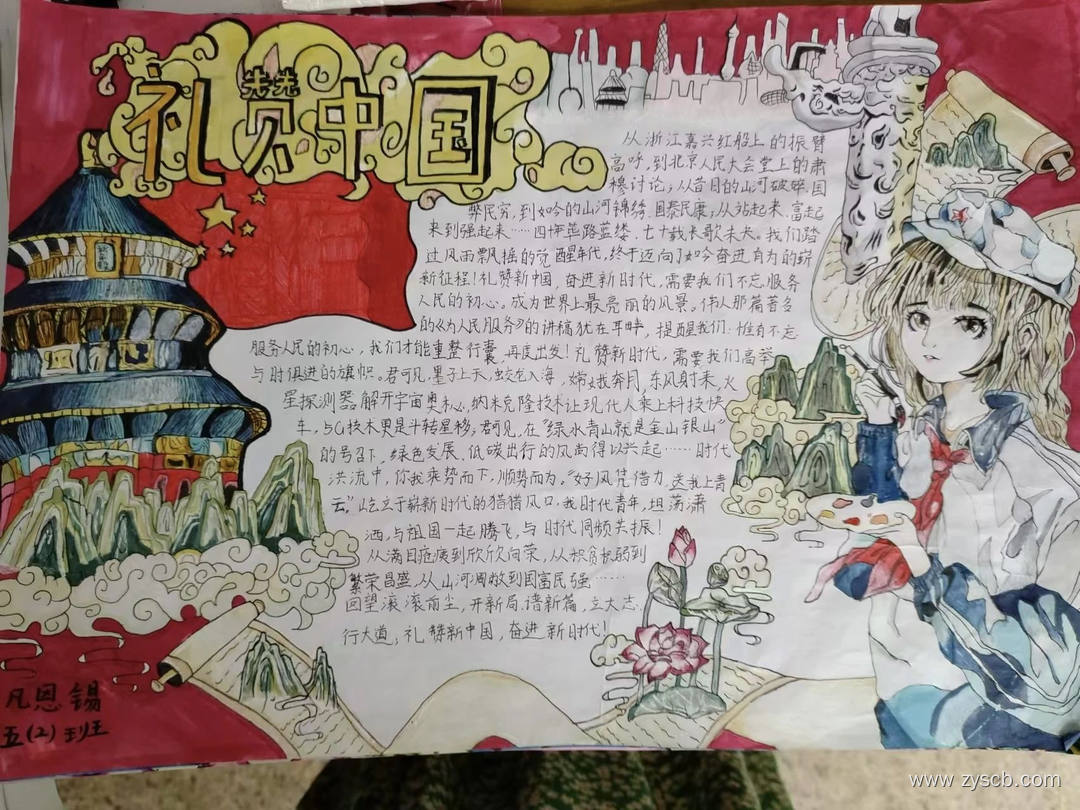 礼赞中国
从浙江嘉兴红船上的振臂
高呼,到北京人民大会堂上的肃
穆讨论;从昔日的山河破碎,国
弊民穷,到如今的山河锦绣,国泰民康;从站起来、富起
来到强起来……四十年筚路蓝缕,七十载长歌未央。我们踏
过风雨飘摇的觉醒年代,终于迈向了如今奋进有为的崭
新征程!礼赞新中国,奋进新时代,需要我们不忘服务
人民的初心,成为世界上最亮丽的风景。伟人那篇著名
的《为人民服务》的讲稿犹在耳畔,提醒我们:惟有不忘
服务人民的初心,我们才能重整行囊,再度出发!礼赞新时代,需要我们高举
与时俱进的旗帜。君可见,墨子上天,蛟龙入海,嫦娥奔月,东风射来,火
星探测器解开宇宙奥秘,纳米克隆技术让现代人乘上科技快
车,5G技术更是斗转星移;君可见,在“绿水青山就是金山银山”
的号召下,绿色发展、低碳出行的风尚得以兴起……时代
洪流中,你我乘势而下,顺势而为。“好风凭借力,送我上青
云。”屹立于崭新时代的猎猎风口,我时代青年,坦荡潇
洒,与祖国一起腾飞,与时代同频共振!
从满目疮痍到欣欣向荣,从积贫积弱到
繁荣昌盛,从山河凋敝到国富民强……
回望滚滚前尘,开新局,谱新篇,立大志,
行大道,礼赞新中国,奋进新时代!
凡恩锡
五(2)班
www.zyscb.com